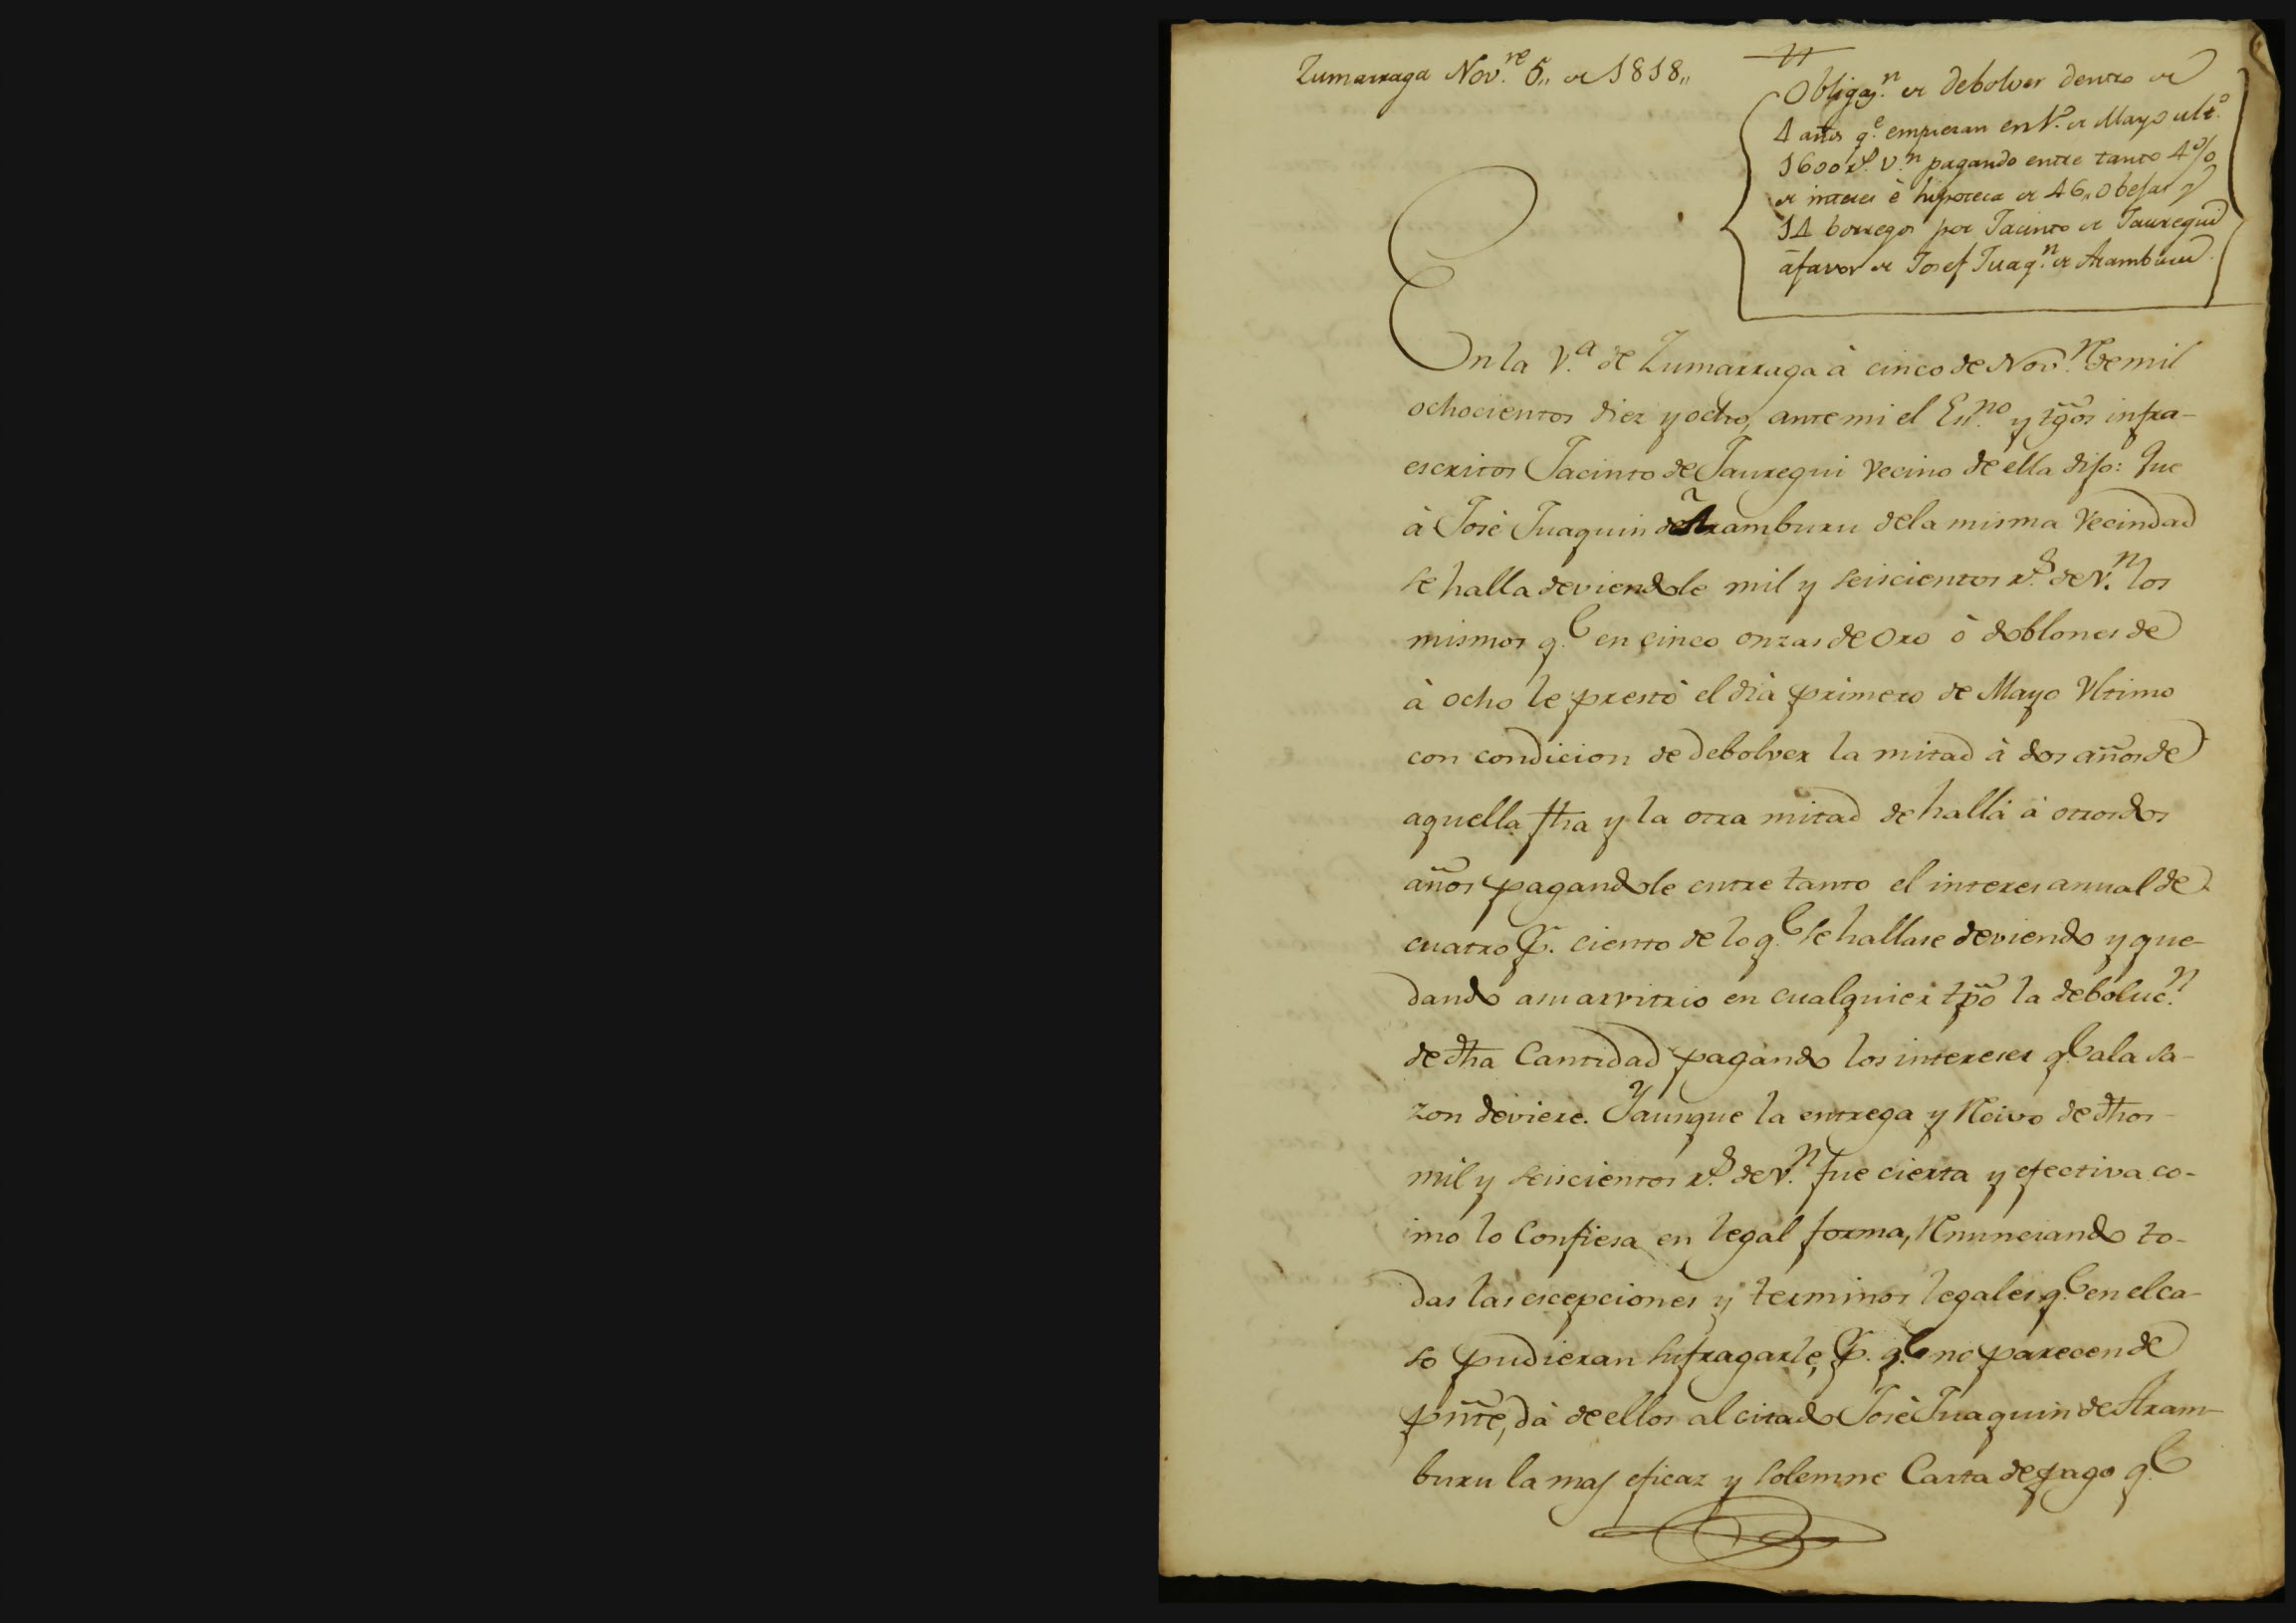 Zumarraga Nov.re 5,, de 1818,,
Obligaz.n de debolver dentro de
4 años q.e empiezan en 1.º de Mayo ult.º
1600 r.s v.n pagando entre tanto 4 %
de interes è hipoteca de 46,, obejas y
14 borregos por Jacinto de Jauregui
à favor de Josef Juaq.n de Aramburu.
En la V.a de Zumarraga à cinco de Nov.re de mil
ochocientos diez y ocho, ante mi el Es.no y tg̃os infra-
escritos Jacinto de Jauregui vecino de ella dijo: Que
à Josè Juaquin de Aramburu de la misma vecindad
se halla deviendole mil y seiscientos r.s de v.n los
mismos q.e en cinco onzas de oro ò doblones de
à ocho le prestò el dia primero de Mayo ultimo
con condicion de debolver la mitad à dos años de
aquella fha y la otra mitad de hallà à otros dos
años pagandole entre tanto el interes anual de
cuatro p.r ciento de lo q.e se hallase deviendo y que-
dando a su arvitrio en cualquier tp̃o la deboluc.n
de dha Cantidad pagando los intereses q.e a la sa-
zon deviere. Y aunque la entrega y Reivo de dhos
mil y seiscientos r.s de v.n fue cierta y efectiva co-
mo lo Confiesa en legal forma, Renunciando to-
das las escepciones y terminos legales q.e en el ca-
so pudieran sufragarle, p.r q.e no parecen de
pñte, dà de ellos al citado Josè Juaquin de Aram-
buru la mas eficaz y solemne Carta de pago q.e